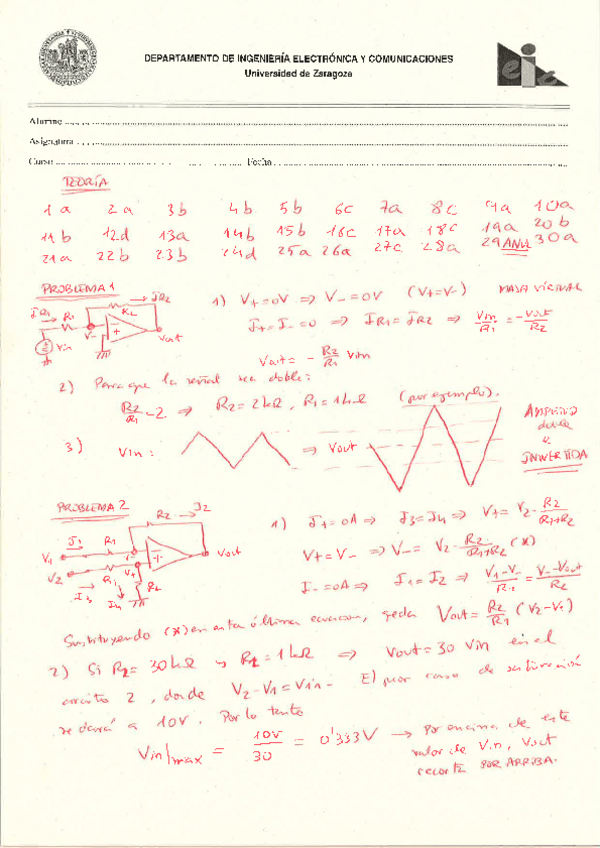 DEPARTAMENTO DE INGENIERÍA ELECTRÓNICA Y COMUNICACIONES
Universidad de Zaragoza
eic
Alumno
Asignatura
Curso Fecha
TEORÍA
1a 2a 3b 4b 5b 6c 7a 8c 9a 10a
11b 12d 13a 14b 15b 16c 17a 18c 19a 20b
21a 22b 23b 24d 25a 26a 27c 28a 29 ANUL 30a
PROBLEMA 1
IR1 R1 R2 IR2 V- Vin Vout
1) V+=0V ⇒ V-=0V (V+=V-) MASA VIRTUAL
I+=I-=0 ⇒ IR1=IR2 ⇒ Vin/R1 = -Vout/R2
Vout = - R2/R1 Vin
2) Para que la señal sea doble:
R2/R1=2 ⇒ R2=2kΩ, R1=1kΩ (por ejemplo).
3) Vin: ⇒ Vout
AMPLITUD doble e INVERTIDA
PROBLEMA 2
I1 R1 R2 I2 V1 V2 V- V+ Vout R1 R2 I3 I4
1) I+=0A ⇒ I3=I4 ⇒ V+= V2·R2/(R1+R2)
V+=V- ⇒ V-= V2·R2/(R1+R2) (*)
I-=0A ⇒ I1=I2 ⇒ (V1-V-)/R1 = (V--Vout)/R2
Sustituyendo (*) en esta última ecuacion, queda Vout= R2/R1 (V2-V1)
2) Si R2=30kΩ y R1=1kΩ ⇒ Vout=30 Vin en el
circuito 2, donde V2-V1=Vin. El peor caso de saturación
se dará a 10V. Por lo tanto
Vin|max = 10V/30 = 0'333V → Por encima de este
valor de Vin, Vout
recorta POR ARRIBA.